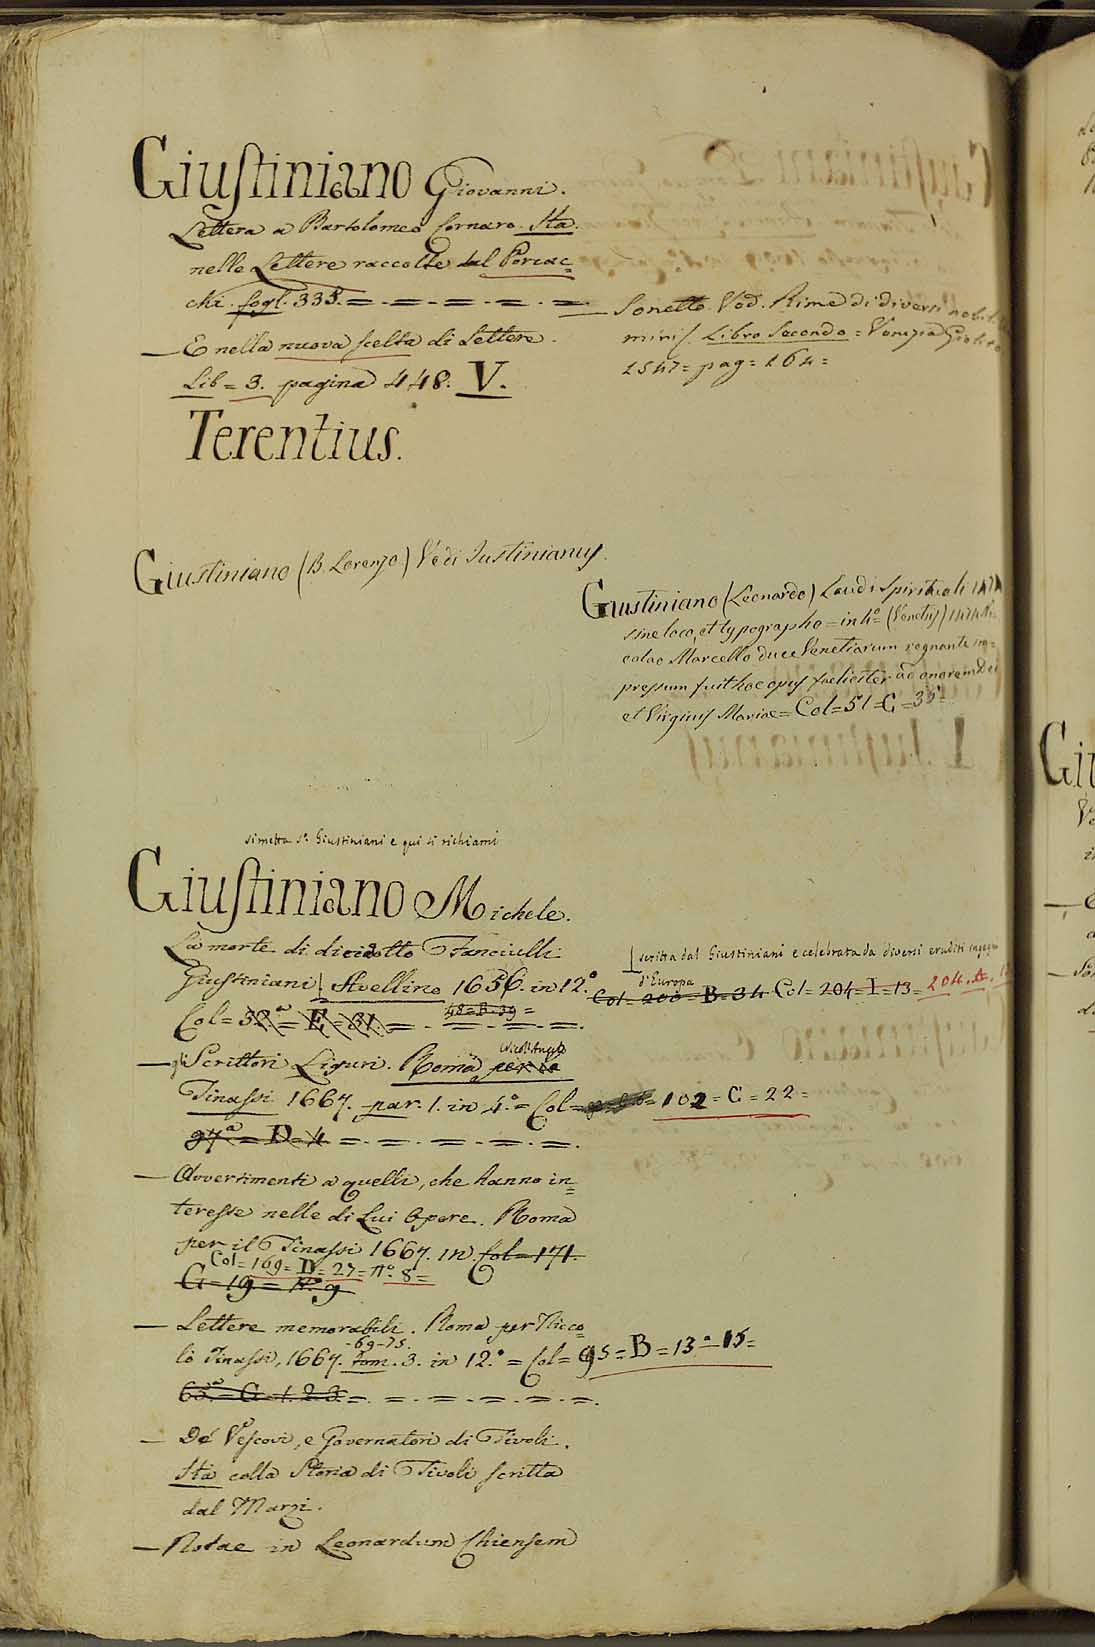 Giustiniano Giovanni.
Lettera a Bartolomeo Cornaro. Sta
nelle Lettere raccolte dal Porcac=
chi. fogl. 335. = - = - = - = - =
— E nella nuova scelta di Lettere.
Lib = 3. pagina 448. V.
Terentius.
— Sonetto. Ved. Rime di diversi nobil
minis. Libro Secondo = Venezia Giolito
1547 = pag = 164 =
Giustiniano (B. Lorenzo) Vedi Iustinianus.
Giustiniano (Leonardo) Laudi Spirituali 1474
sine loco, et typographo = in 4.º = (Venetiis) 1474 Ni=
colao Marcello duce Venetiarum regnante im=
pressum fuit hoc opus foeliciter ad onorem Dei
et Virginis Mariae = Col = 51 = C = 35 =
si metta sº Giustiniani e qui si richiami
Giustiniano Michele.
La morte di diciotto Fanciulli
Giustiniani Avellino 1656. in 12.º
scritta dal Giustiniani e celebrata da diversi eruditi ingegni
d'Europa
Col = 200 = B = 34 Col = 204 = I = 13 = 204. A.
48 = B. 39 =
Col = 32.ª = E = 31. = - = - = - = - =
— gli Scrittori Liguri. Roma per la
Nicol' Angelo
Tinassi 1667. par. 1. in 4.º = Col = 102 = C = 22 =
27.ª = D = 4 = - = - = - = - =
— Avvertimenti a quelli, che hanno in=
teresse nelle di Lui Opere. Roma
per il Tinassi 1667. in. Col = 171.
Col = 169 = D = 27 = nº. 8 =
G = 19 = Nº. 9
— Lettere memorabili. Roma per Nicco=
- 69 - 75.
lò Tinassi, 1667. tom. 3. in 12.º = Col = 95 = B = 13.ª — 15 =
63.ª = G = 1. 2. 3. = - = - = - = - =
— De' Vescovi, e Governatori di Tivoli.
Sta colla Storia di Tivoli scritta
dal Marzi.
— Notae in Leonardum Chiensem